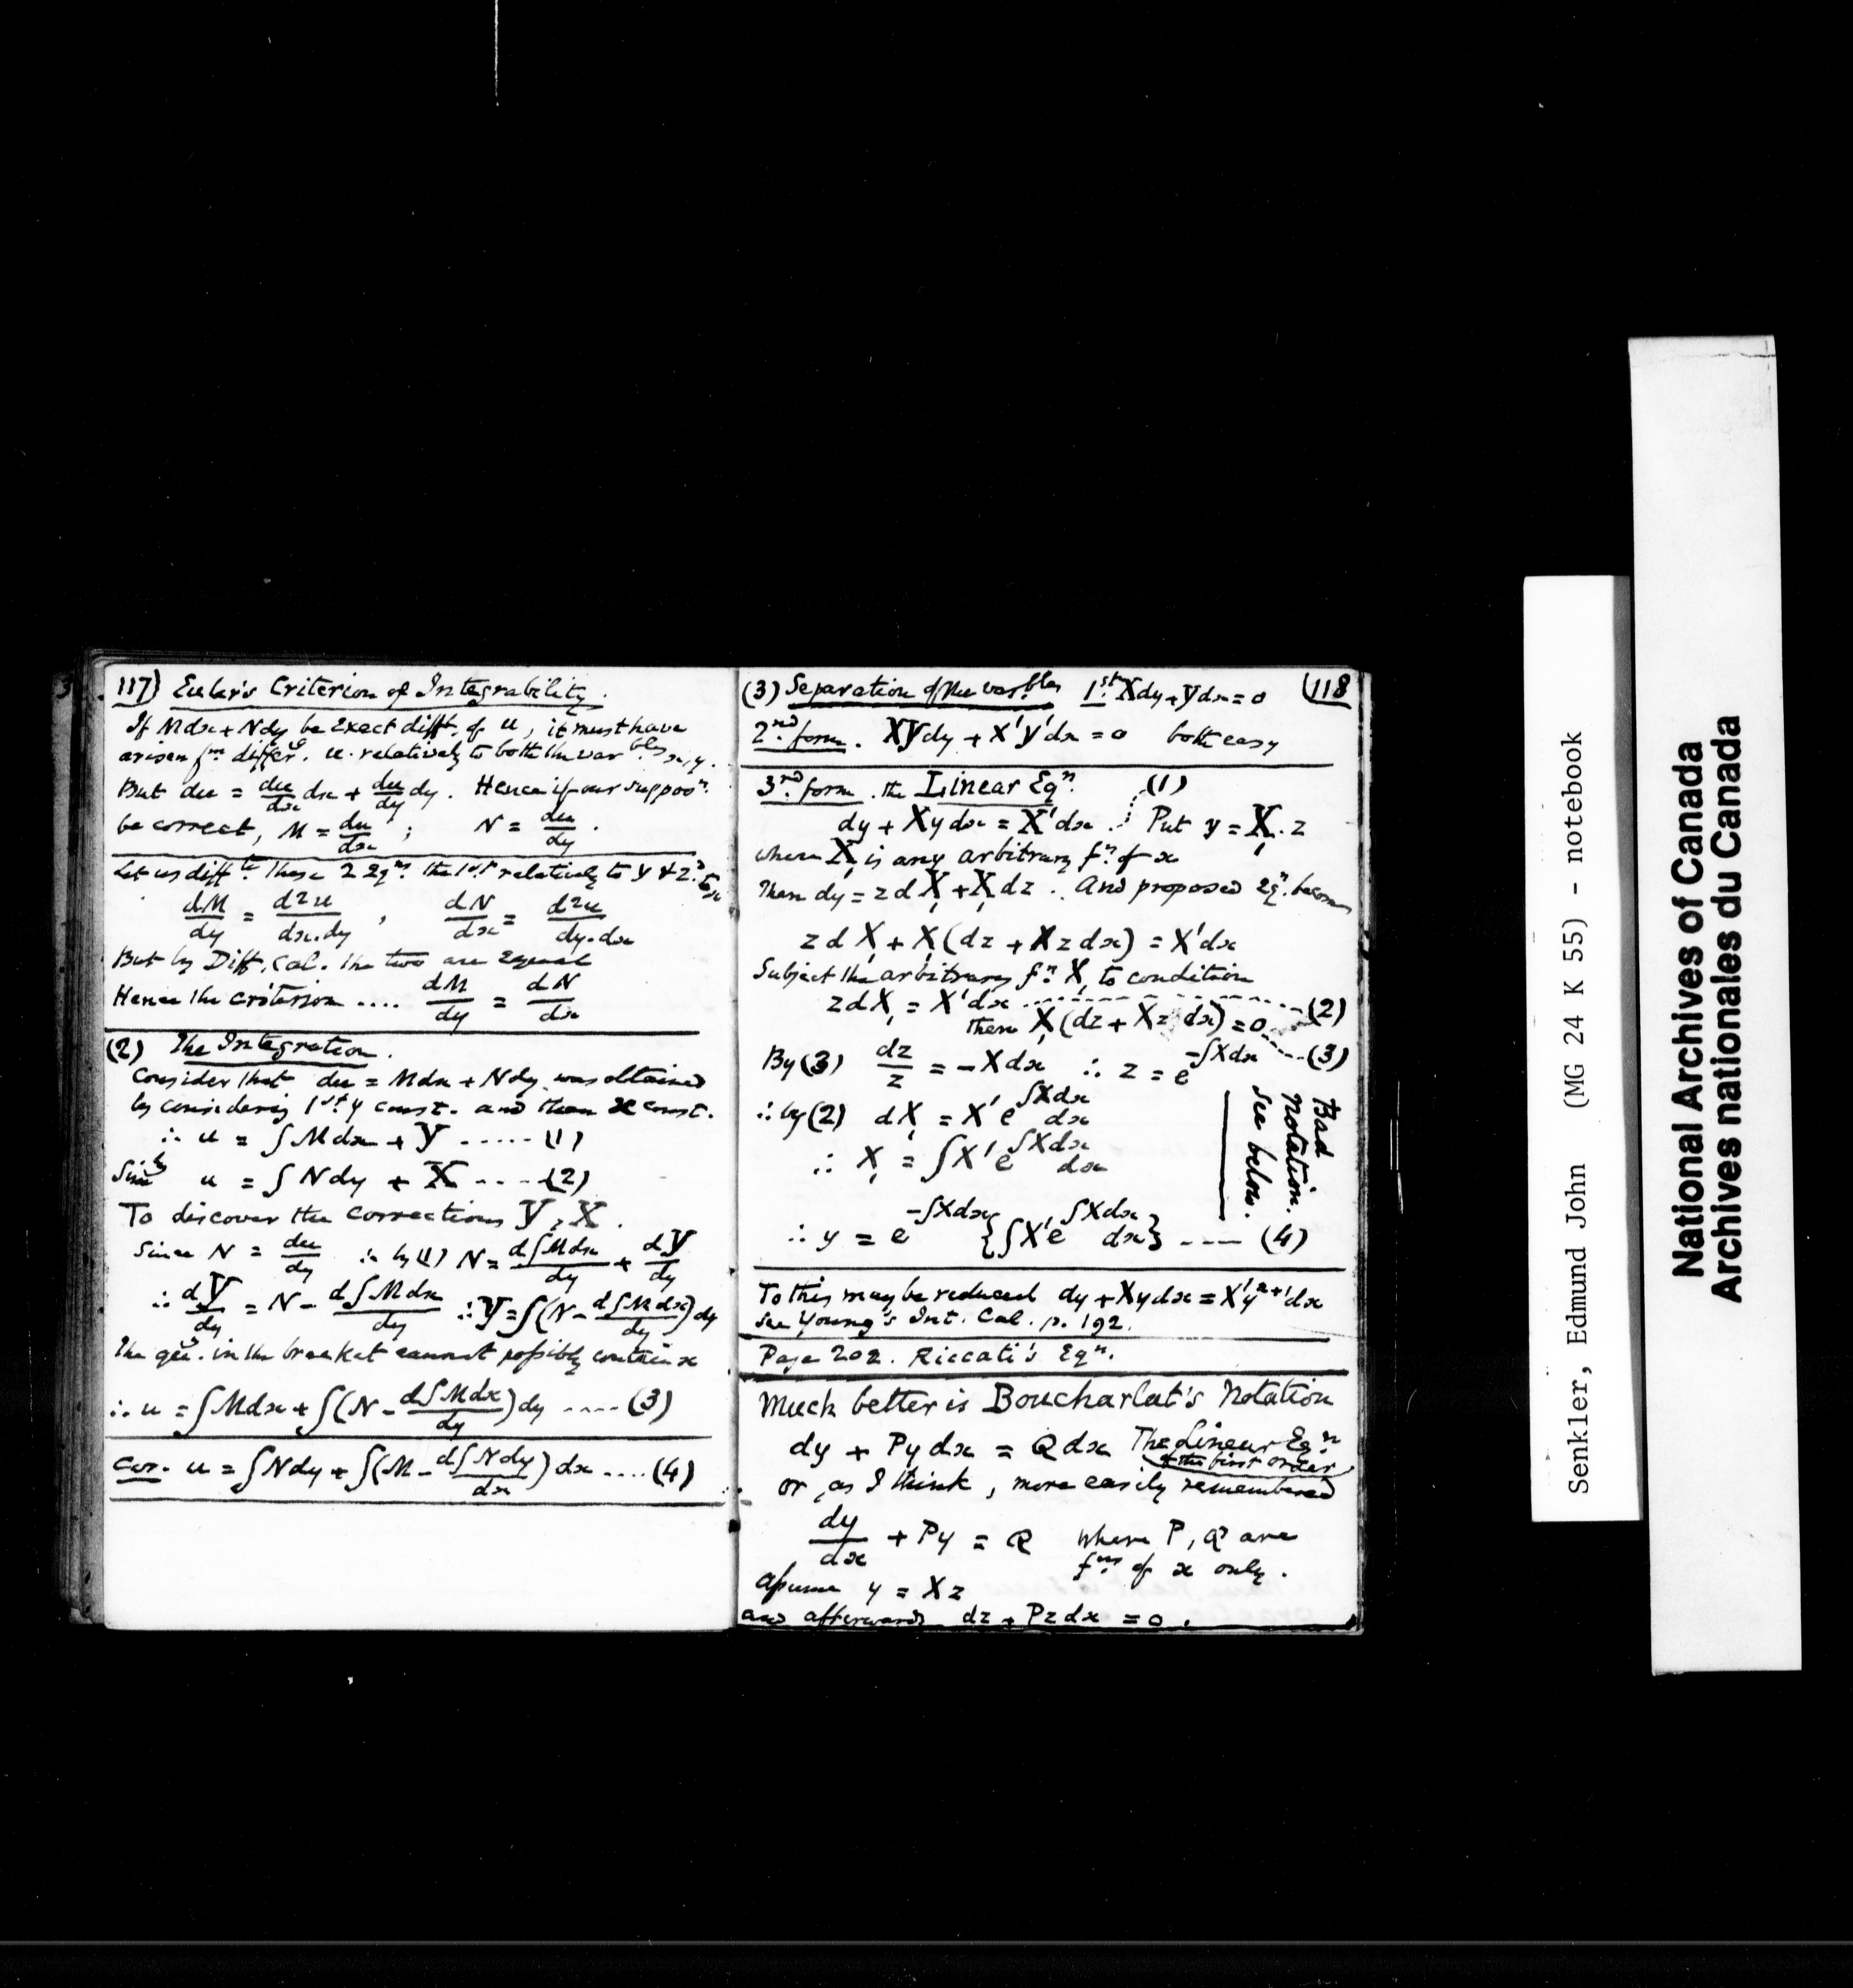 117) Euler's Criterion of Integrability.
If Mdx + Ndy be exact diff. of u, it must have
arisen fm differg. u relatively to both the varbles x, y.
But du = du/dx dx + du/dy dy. Hence if our suppon.
be correct, M = du/dx ; N = du/dy.
Let us difft. these 2 Eqns. the 1st relatively to y & 2nd to x
dM/dy = d2u/dx.dy , dN/dx = d2u/dy.dx
But by Diff. Cal. the two are equal
Hence the criterion .... dM/dy = dN/dx
(2) The Integration.
Consider that du = Mdx + Ndy was obtained
by considering 1st y const. and then x const.
∴ u = ∫Mdx + Y ..... (1)
Simly u = ∫Ndy + X ..... (2)
To discover the corrections Y, X.
Since N = du/dy ∴ by (1) N = d∫Mdx/dy + dY/dy
∴ dY/dy = N - d∫Mdx/dy ∴ Y = ∫(N - d∫Mdx/dy) dy
The in the bracket cannot possibly contain x
∴ u = ∫Mdx + ∫(N - d∫Mdx/dy) dy .... (3)
Cor. u = ∫Ndy + ∫(M - d∫Ndy/dx) dx .... (4)
(3) Separation of the varbles 1st. Xdy + Ydx = 0 (118
2nd. form. XYdy + X'Y'dx = 0 both easy
3rd. form. the Linear Eqn. (1)
dy + Xydx = X'dx. Put y = X,.z
where X, is any arbitrary fn. of x
Then dy = zdX, + X,dz. And proposed Eqn. becomes
zdX, + X,(dz + Xzdx) = X'dx
Subject the arbitrary fn X, to condition
zdX, = X'dx ........ (2)
then X,(dz + Xzdx) = 0 ..... (3)
By (3) dz/z = -Xdx ∴ z = e^-∫Xdx
∴ by (2) dX, = X'e^∫Xdx dx
∴ X, = ∫X'e^∫Xdx dx
Bad notation.
See below.
∴ y = e^-∫Xdx {∫X'e^∫Xdx dx} ---- (4)
To this may be reduced dy + Xydx = X'y^n+1dx
see Young's Int. Cal. p. 192.
Page 202. Riccati's Eqn.
Much better is Boucharlat's Notation
dy + Pydx = Qdx The Linear Eqn.
of the first order
or, as I think, more easily remembered
dy/dx + Py = Q where P, Q are
fns. of x only.
Assume y = Xz
and afterwards dz + Pzdx = 0.
Senkler, Edmund John (MG 24 K 55) - notebook
National Archives of Canada
Archives nationales du Canada